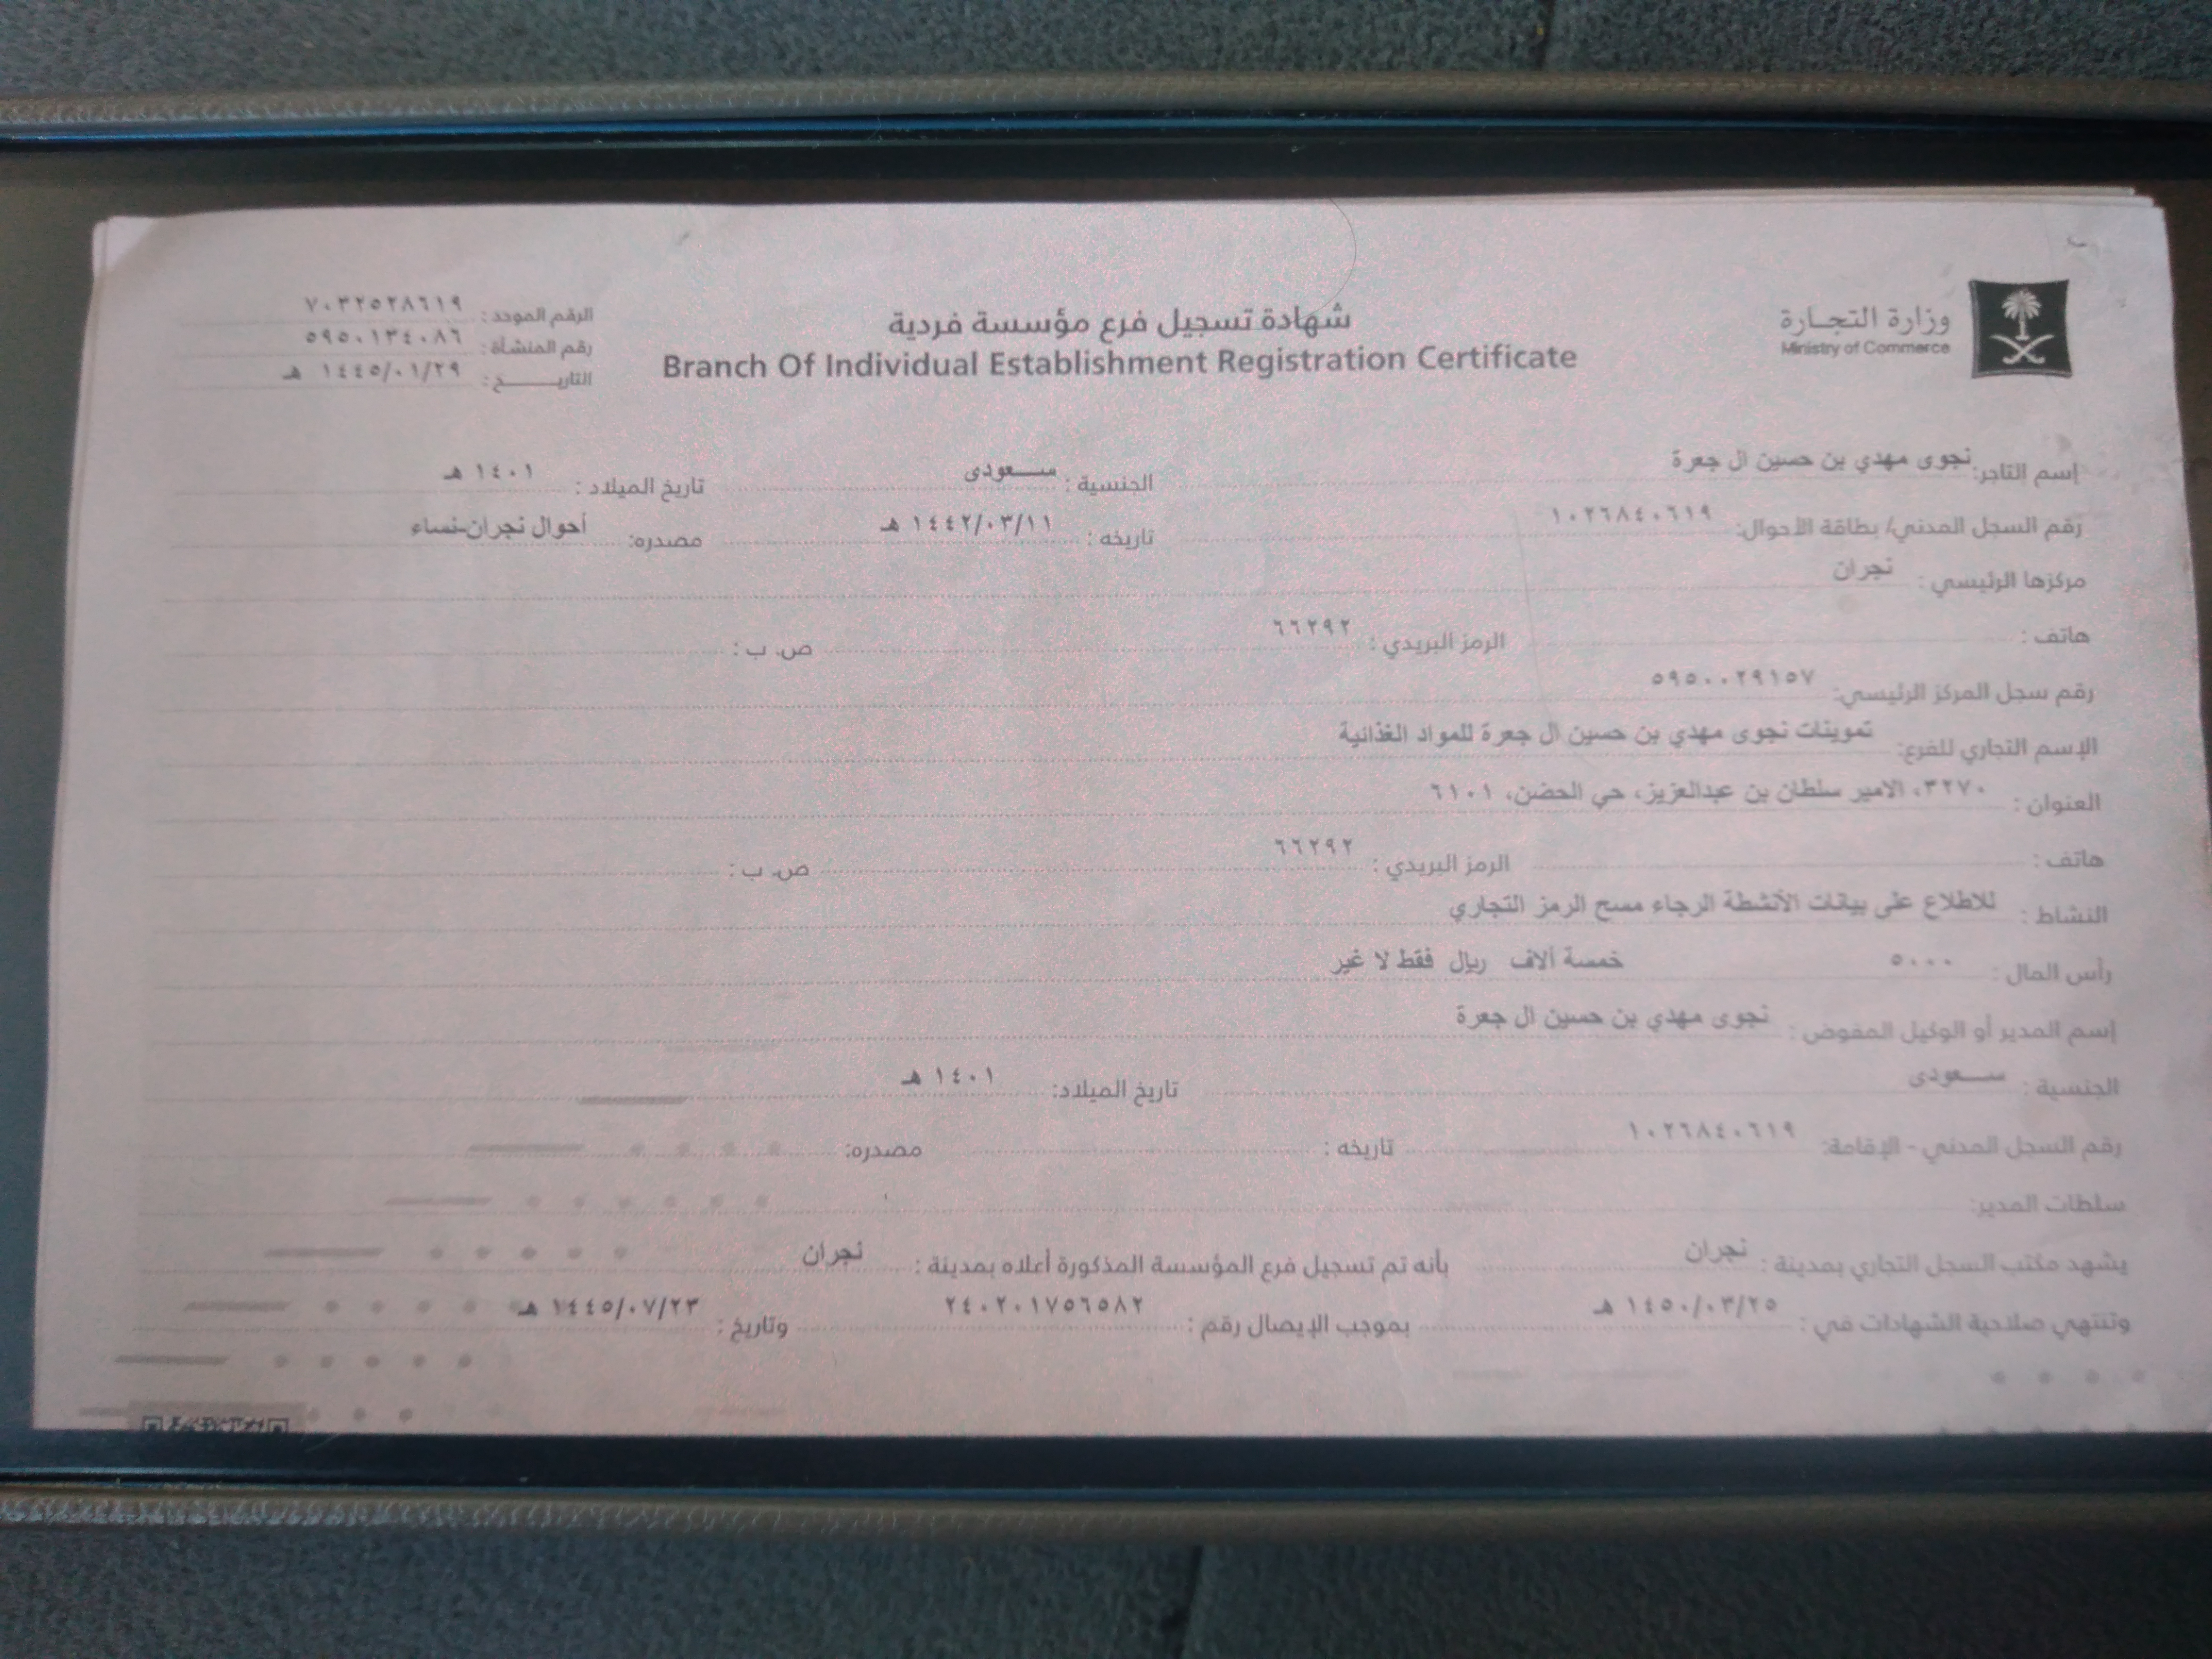 وزارة التجارة
Ministry of Commerce
شهادة تسجيل فرع مؤسسة فردية
Branch Of Individual Establishment Registration Certificate
الرقم الموحد : ٧٠٣٢٥٢٨٦١٩
رقم المنشأة : ٥٩٥٠١٣٤٠٨٦
التاريـــــخ : ١٤٤٥/٠١/٢٩ هـ
إسم التاجر: نجوى مهدي بن حسين ال جعرة الجنسية : ســـعودى تاريخ الميلاد : ١٤٠١ هـ
رقم السجل المدني/ بطاقة الأحوال: ١٠٢٦٨٤٠٦١٩ تاريخه : ١٤٤٢/٠٣/١١ هـ مصدره: أحوال نجران-نساء
مركزها الرئيسي : نجران
هاتف : الرمز البريدي : ٦٦٢٩٢ ص. ب :
رقم سجل المركز الرئيسي: ٥٩٥٠٠٢٩١٥٧
الإسم التجاري للفرع: تموينات نجوى مهدي بن حسين ال جعرة للمواد الغذائية
العنوان : ٣٢٧٠، الامير سلطان بن عبدالعزيز، حي الحضن، ٦١٠١
هاتف : الرمز البريدي : ٦٦٢٩٢ ص. ب :
النشاط : للاطلاع على بيانات الأنشطة الرجاء مسح الرمز التجاري
رأس المال : ٥٠٠٠ خمسة ألاف ريال فقط لا غير
إسم المدير أو الوكيل المفوض : نجوى مهدي بن حسين ال جعرة
الجنسية : ســـعودى تاريخ الميلاد: ١٤٠١ هـ
رقم السجل المدني - الإقامة: ١٠٢٦٨٤٠٦١٩ تاريخه : مصدره:
سلطات المدير:
يشهد مكتب السجل التجاري بمدينة : نجران بأنه تم تسجيل فرع المؤسسة المذكورة أعلاه بمدينة : نجران
وتنتهي صلاحية الشهادات في : ١٤٥٠/٠٣/٢٥ هـ بموجب الإيصال رقم : ٢٤٠٢٠١٧٥٦٥٨٢ وتاريخ : ١٤٤٥/٠٧/٢٣ هـ